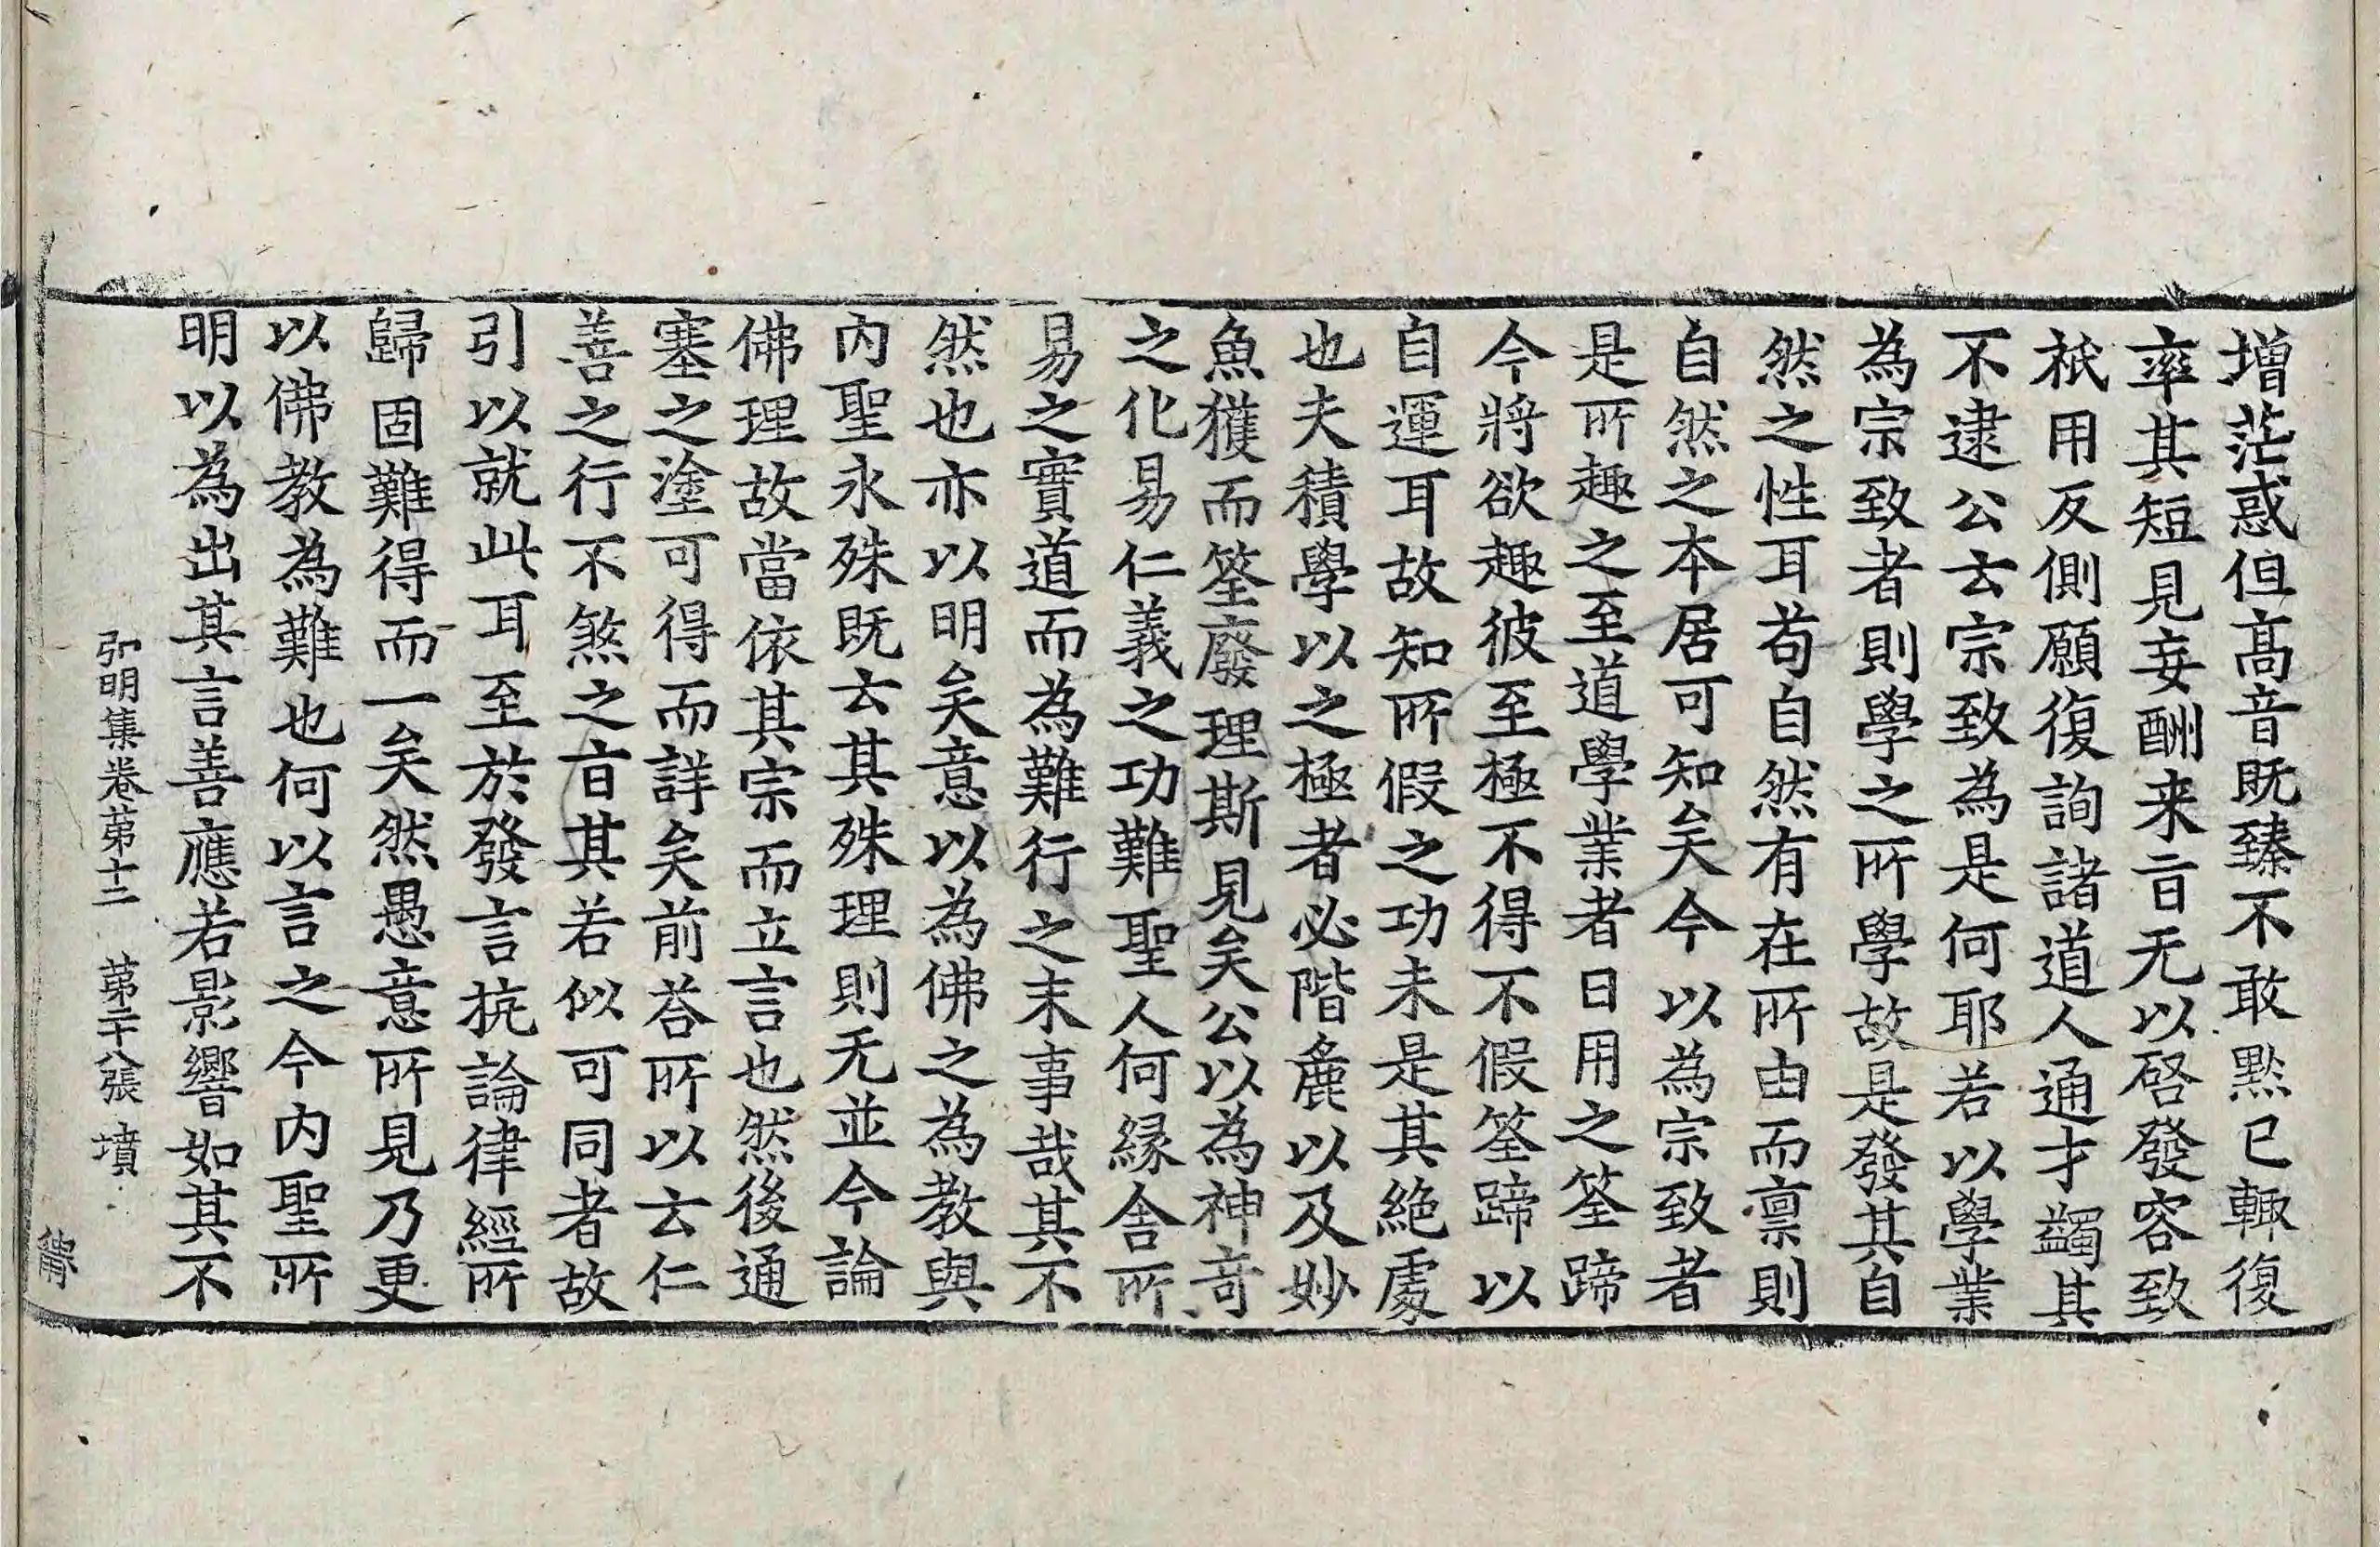 增茫惑但高音既臻不敢黙已輙復
率其短見妄酬来旨无以啓發容致
祇用反側願復詢諸道人通才蠲其
不逮公云宗致為是何耶若以學業
為宗致者則學之所學故是發其自
然之性耳苟自然有在所由而禀則
自然之本居可知矣今以為宗致者
是所趣之至道學業者日用之筌蹄
今將欲趣彼至極不得不假筌蹄以
自運耳故知所假之功未是其絶處
也夫積學以之極者必階麁以及妙
魚獲而筌廢理斯見矣公以為神奇
之化易仁義之功難聖人何緣舍所
易之實道而為難行之末事哉其不
然也亦以明矣意以為佛之為教與
內聖永殊既云其殊理則无並今論
佛理故當依其宗而立言也然後通
塞之塗可得而詳矣前荅所以云仁
善之行不煞之旨其若似可同者故
引以就此耳至於發言抗論律經所
歸固難得而一矣然愚意所見乃更
以佛教為難也何以言之今內聖所
明以為出其言善應若影響如其不
弘明集卷苐十二 苐二十八張 墳